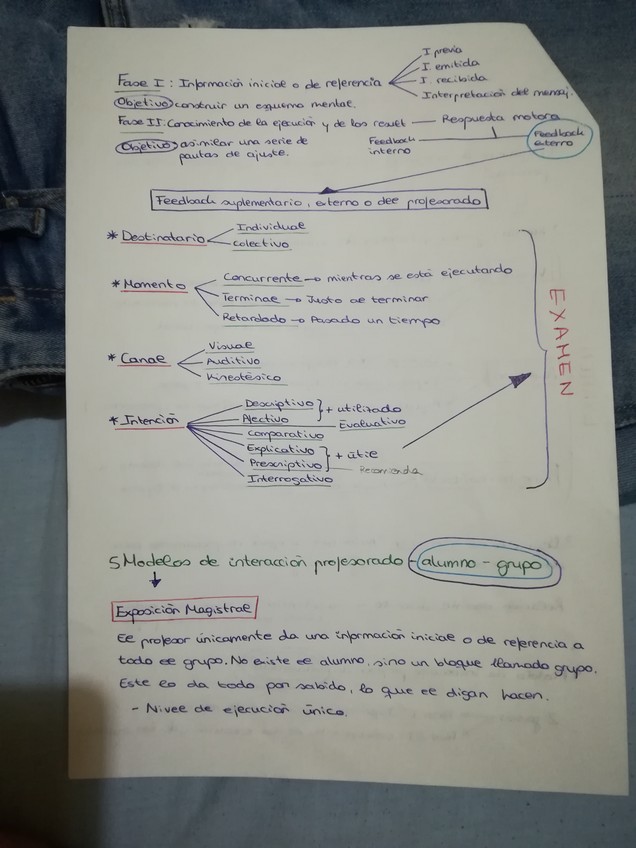 I previa
I. emitida
Fase I: Información inicial o de referencia
I. recibida
Interpretación del mensaj.
Objetivo: construir un esquema mental.
Fase II: Conocimiento de la ejecución y de los result — Respuesta motora
Objetivo: asimilar una serie de pautas de ajuste.
Feedback interno
Feedback externo
Feedback suplementario, externo o del profesorado
* Destinatario
Individual
Colectivo
* Momento
Concurrente → mientras se está ejecutando
Terminal → Justo al terminar
Retardado → Pasado un tiempo
* Canal
Visual
Auditivo
Kinestésico
* Intención
Descriptivo
Afectivo
+ utilizado
Evaluativo
Comparativo
Explicativo
Prescriptivo
+ útil
Recomienda
Interrogativo
EXAMEN
5 Modelos de interacción profesorado - alumno - grupo
Exposición Magistral
El profesor únicamente da una información inicial o de referencia a
todo el grupo. No existe el alumno, sino un bloque llamado grupo.
Este lo da todo por sabido, lo que él digan hacen.
- Nivel de ejecución único.